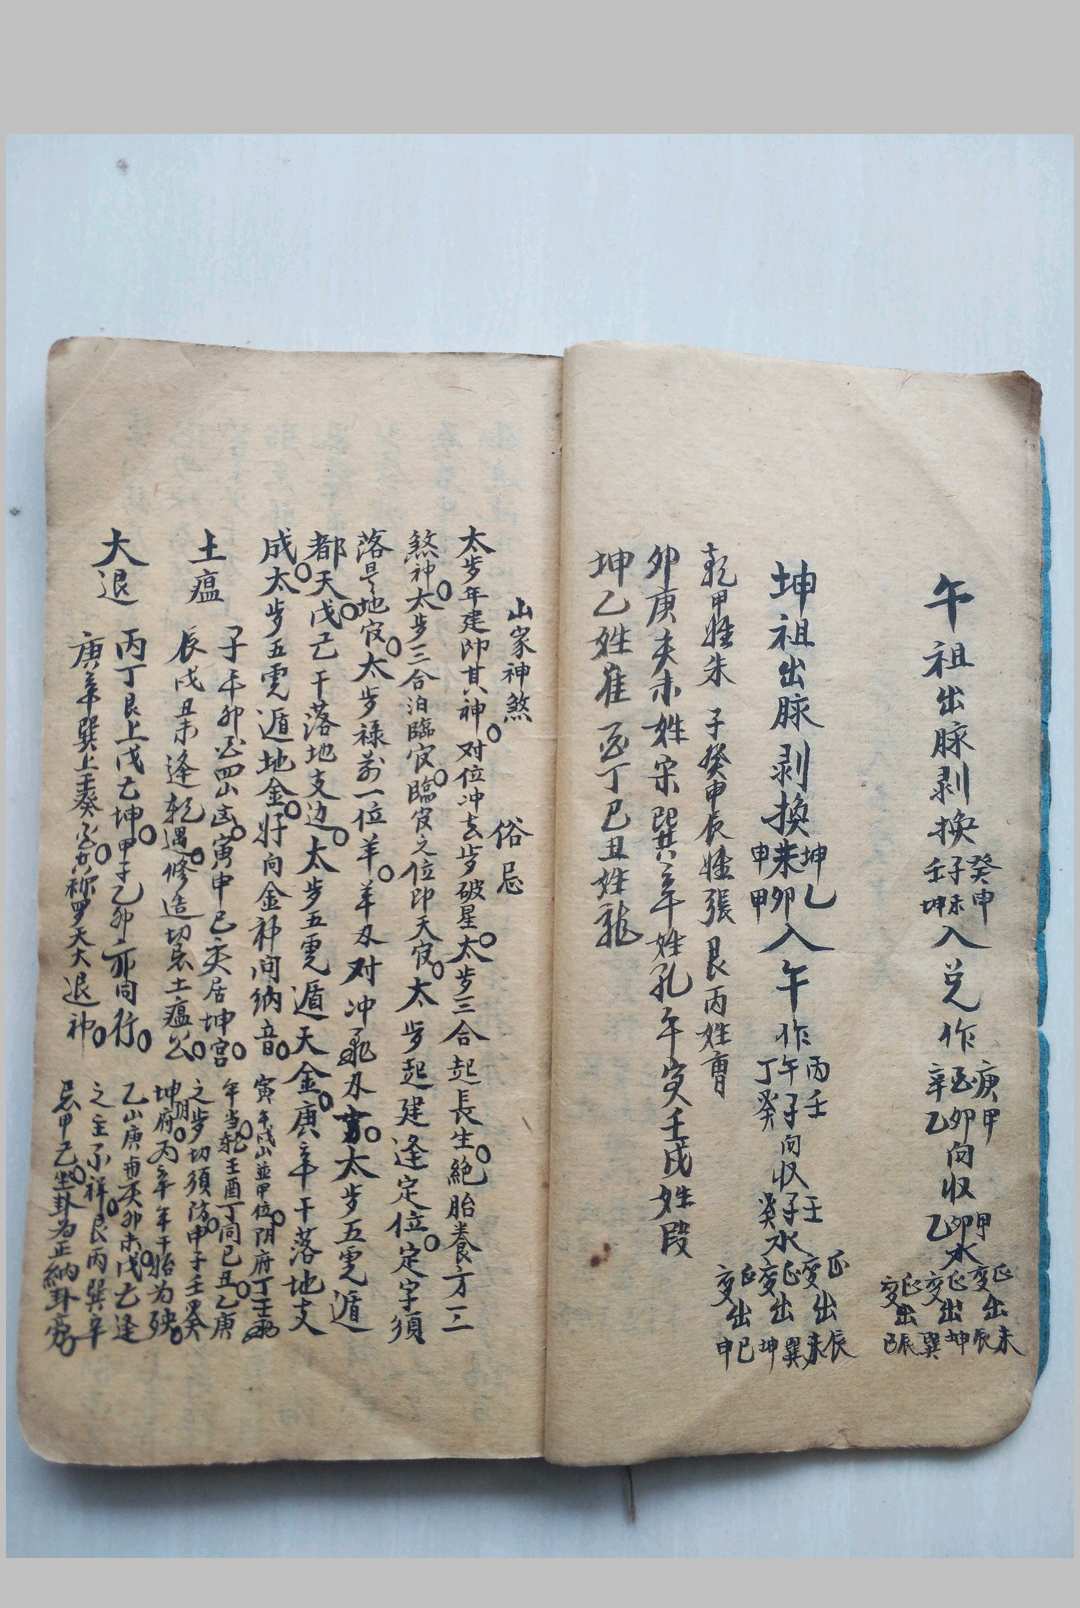 午祖出脉剥換癸申子未壬坤入兌作庚甲酉卯辛乙向收甲卯乙水
正変出未辰
正変出坤巽
正変出辰巳
坤祖出脉剥換坤乙未卯申甲入午作丙壬午子丁癸向收壬子癸水
正変出辰未
正変出巽坤
正変出巳申
乾甲姓朱 子癸申辰姓張 艮丙姓曹
卯庚亥未姓宋 巽辛姓孔 午寅壬戌姓段
坤乙姓崔 酉丁巳丑姓龍
山家神煞 俗忌
太歩年建即其神。对位冲去歩破星。太歩三合起長生。絶胎養方三
煞神。太歩三合泊臨官。臨官之位即天官。太歩起建逢定位。定字須
落是地官。太歩禄前一位羊。羊刃对冲飛刃方。太歩五虎遁
都天。戊己干落地支边。太歩五虎遁天金。庚辛干落地支
成。太歩五虎遁地金。好向金神向納音。
土瘟
子午卯酉四山凶。寅申巳亥居坤宮。
辰戌丑未逢乾遇。修造切忌土瘟公。
大退
丙丁艮上戊己坤。甲子乙卯亦同行。
庚辛巽上壬癸。天大退神。
寅午戌山並甲位。阴府丁壬
年当乾。壬酉丁同巳丑。乙庚
之歩切須防。申子壬癸
坤府。丙辛年干怡为殃。
乙山庚甫亥卯未。戊己逢
之主不祥。艮丙巽辛
忌甲己。坐卦为正納卦旁